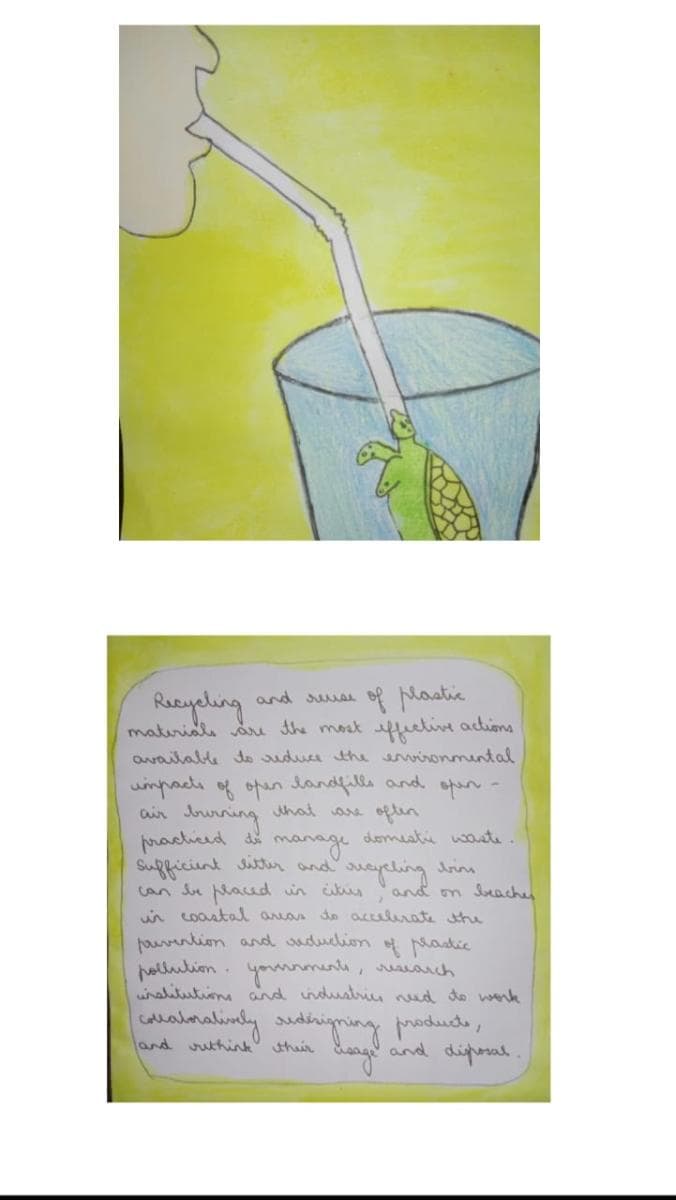 Recycling and reuse of plastic
materials are the most effective actions
available to reduce the environmental
impacts of open landfills and open -
air burning that are often
practiced to manage domestic waste .
Sufficient litter and recycling bins
can be placed in cities , and on beaches
in coastal areas to accelerate the
prevention and reduction of plastic
pollution . governments , research
institutions and industries need to work
collaboratively redesigning products ,
and rethink their usage and disposal .